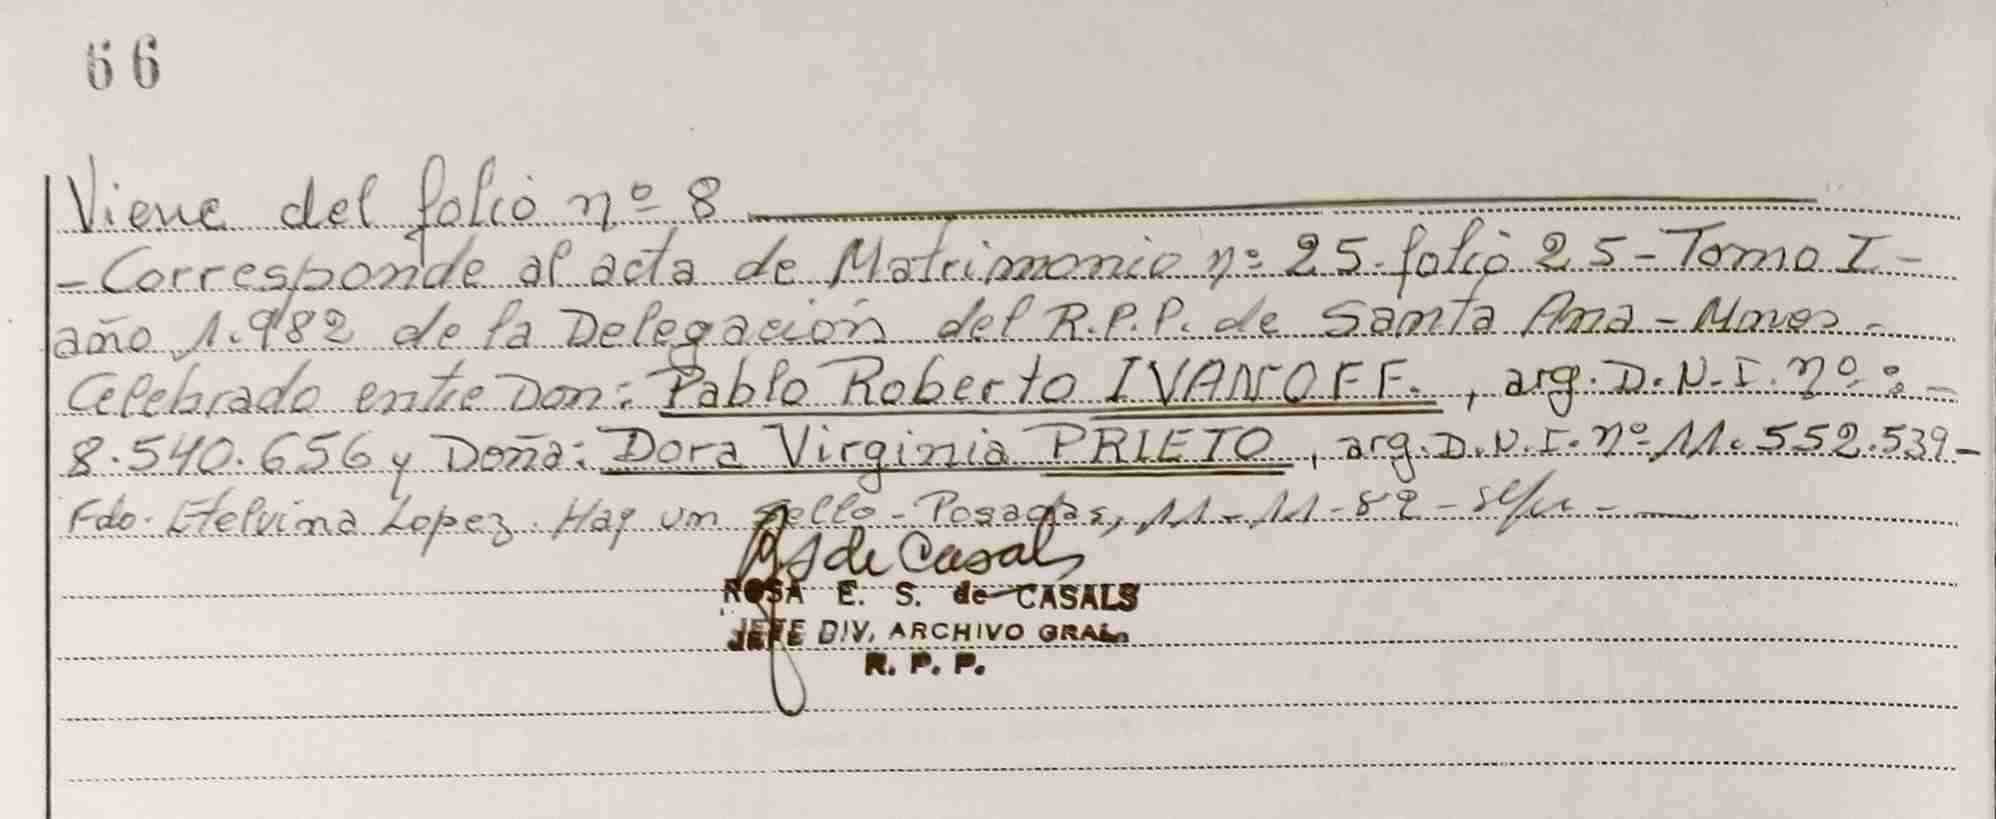 66
Viene del folio nº 8
- Corresponde al acta de Matrimonio nº 25 - folio 25 - Tomo I -
año 1.982 de la Delegación del R.P.P. de Santa Ana - Mnes. -
Celebrado entre Don: Pablo Roberto IVANOFF., arg. D.N.I. nº: -
8.540.656 y Doña: Dora Virginia PRIETO, arg. D.N.I. nº 11.552.539 -
Fdo. Etelvina Lopez. Hay un sello - Posadas, 11-11-82 -
de Casals
ROSA E. S. de CASALS
JEFE DIV. ARCHIVO GRAL.
R. P. P.